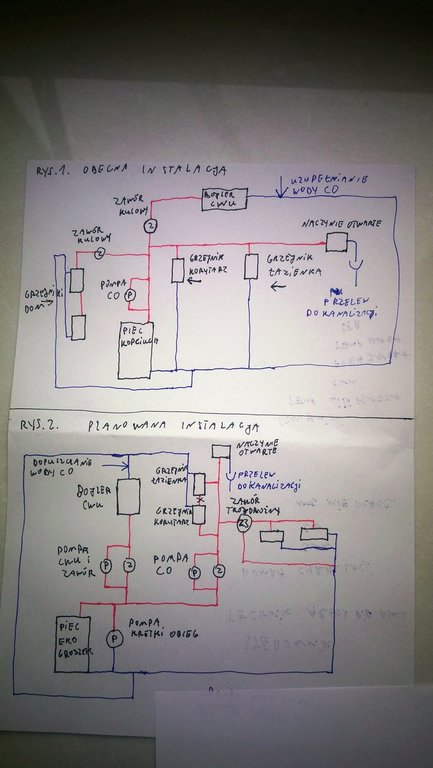 RYS.1. OBECNA INSTALACJA
UZUPEŁNIANIE
WODY CO
ZAWÓR
KULOWY
BOJLER
CWU
Z
NACZYNIE OTWARTE
ZAWÓR
KULOWY
Z
GRZEJNIK
KORYTARZ
GRZEJNIK
ŁAZIENKA
POMPA
CO
P
GRZEJNIKI
DOM
PIEC
KOPCIUCH
PRZELEW
DO KANALIZACJI
RYS.2. PLANOWANA INSTALACJA
NACZYNIE
OTWARTE
DOPUSZCZANIE
WODY CO
GRZEJNIK
ŁAZIENKA
PRZELEW
DO KANALIZACJI
BOJLER
CWU
GRZEJNIK
KORYTARZ
ZAWÓR
TRÓJDROŻNY
Z3
POMPA
CWU I
ZAWÓR
P
Z
POMPA
CO
P
Z
PIEC
EKO
GROSZEK
P
POMPA
KRÓTKI OBIEG